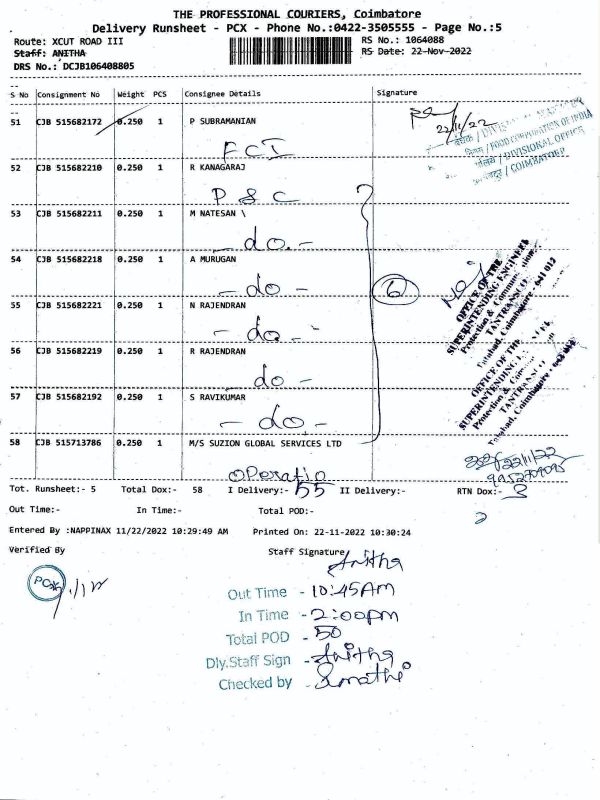 THE PROFESSIONAL COURIERS, Coimbatore
Delivery Runsheet - PCX - Phone No.:0422-3505555 - Page No.:5
Route: XCUT ROAD III RS No.: 1064088
Staff: ANITHA RS Date: 22-Nov-2022
DRS No.: DCJB106408805
S No Consignment No Weight PCS Consignee Details Signature
51 CJB 515682172 0.250 1 P SUBRAMANIAN
22/11/22
FCI
/ FOOD CORPORATION OF INDIA
/ DIVISIONAL OFFICE
/ COIMBATORE
52 CJB 515682210 0.250 1 R KANAGARAJ
P & C
53 CJB 515682211 0.250 1 M NATESAN \
- do. -
54 CJB 515682218 0.250 1 A MURUGAN
- do -
6
OFFICE OF THE
SUPERINTENDING ENGINEER
Protection & Communication
TANTRANSCO
Tatabad, Coimbatore - 641 012
55 CJB 515682221 0.250 1 N RAJENDRAN
- do -
56 CJB 515682219 0.250 1 R RAJENDRAN
do -
OFFICE OF THE
SUPERINTENDING
Protection &
TANTRANSCO
Tatabad, Coimbatore
57 CJB 515682192 0.250 1 S RAVIKUMAR
- do -
58 CJB 515713786 0.250 1 M/S SUZION GLOBAL SERVICES LTD
22/11/22
Operatio
Tot. Runsheet:- 5 Total Dox:- 58 I Delivery:- 55 II Delivery:- RTN Dox:- 3
Out Time:- In Time:- Total POD:-
2
Entered By :NAPPINAX 11/22/2022 10:29:49 AM Printed On: 22-11-2022 10:30:24
Verified By Staff Signature
Anitha
PCX
Out Time - 10:45AM
In Time - 2:00pm
Total POD - 50
Dly.Staff Sign - Anitha
Checked by